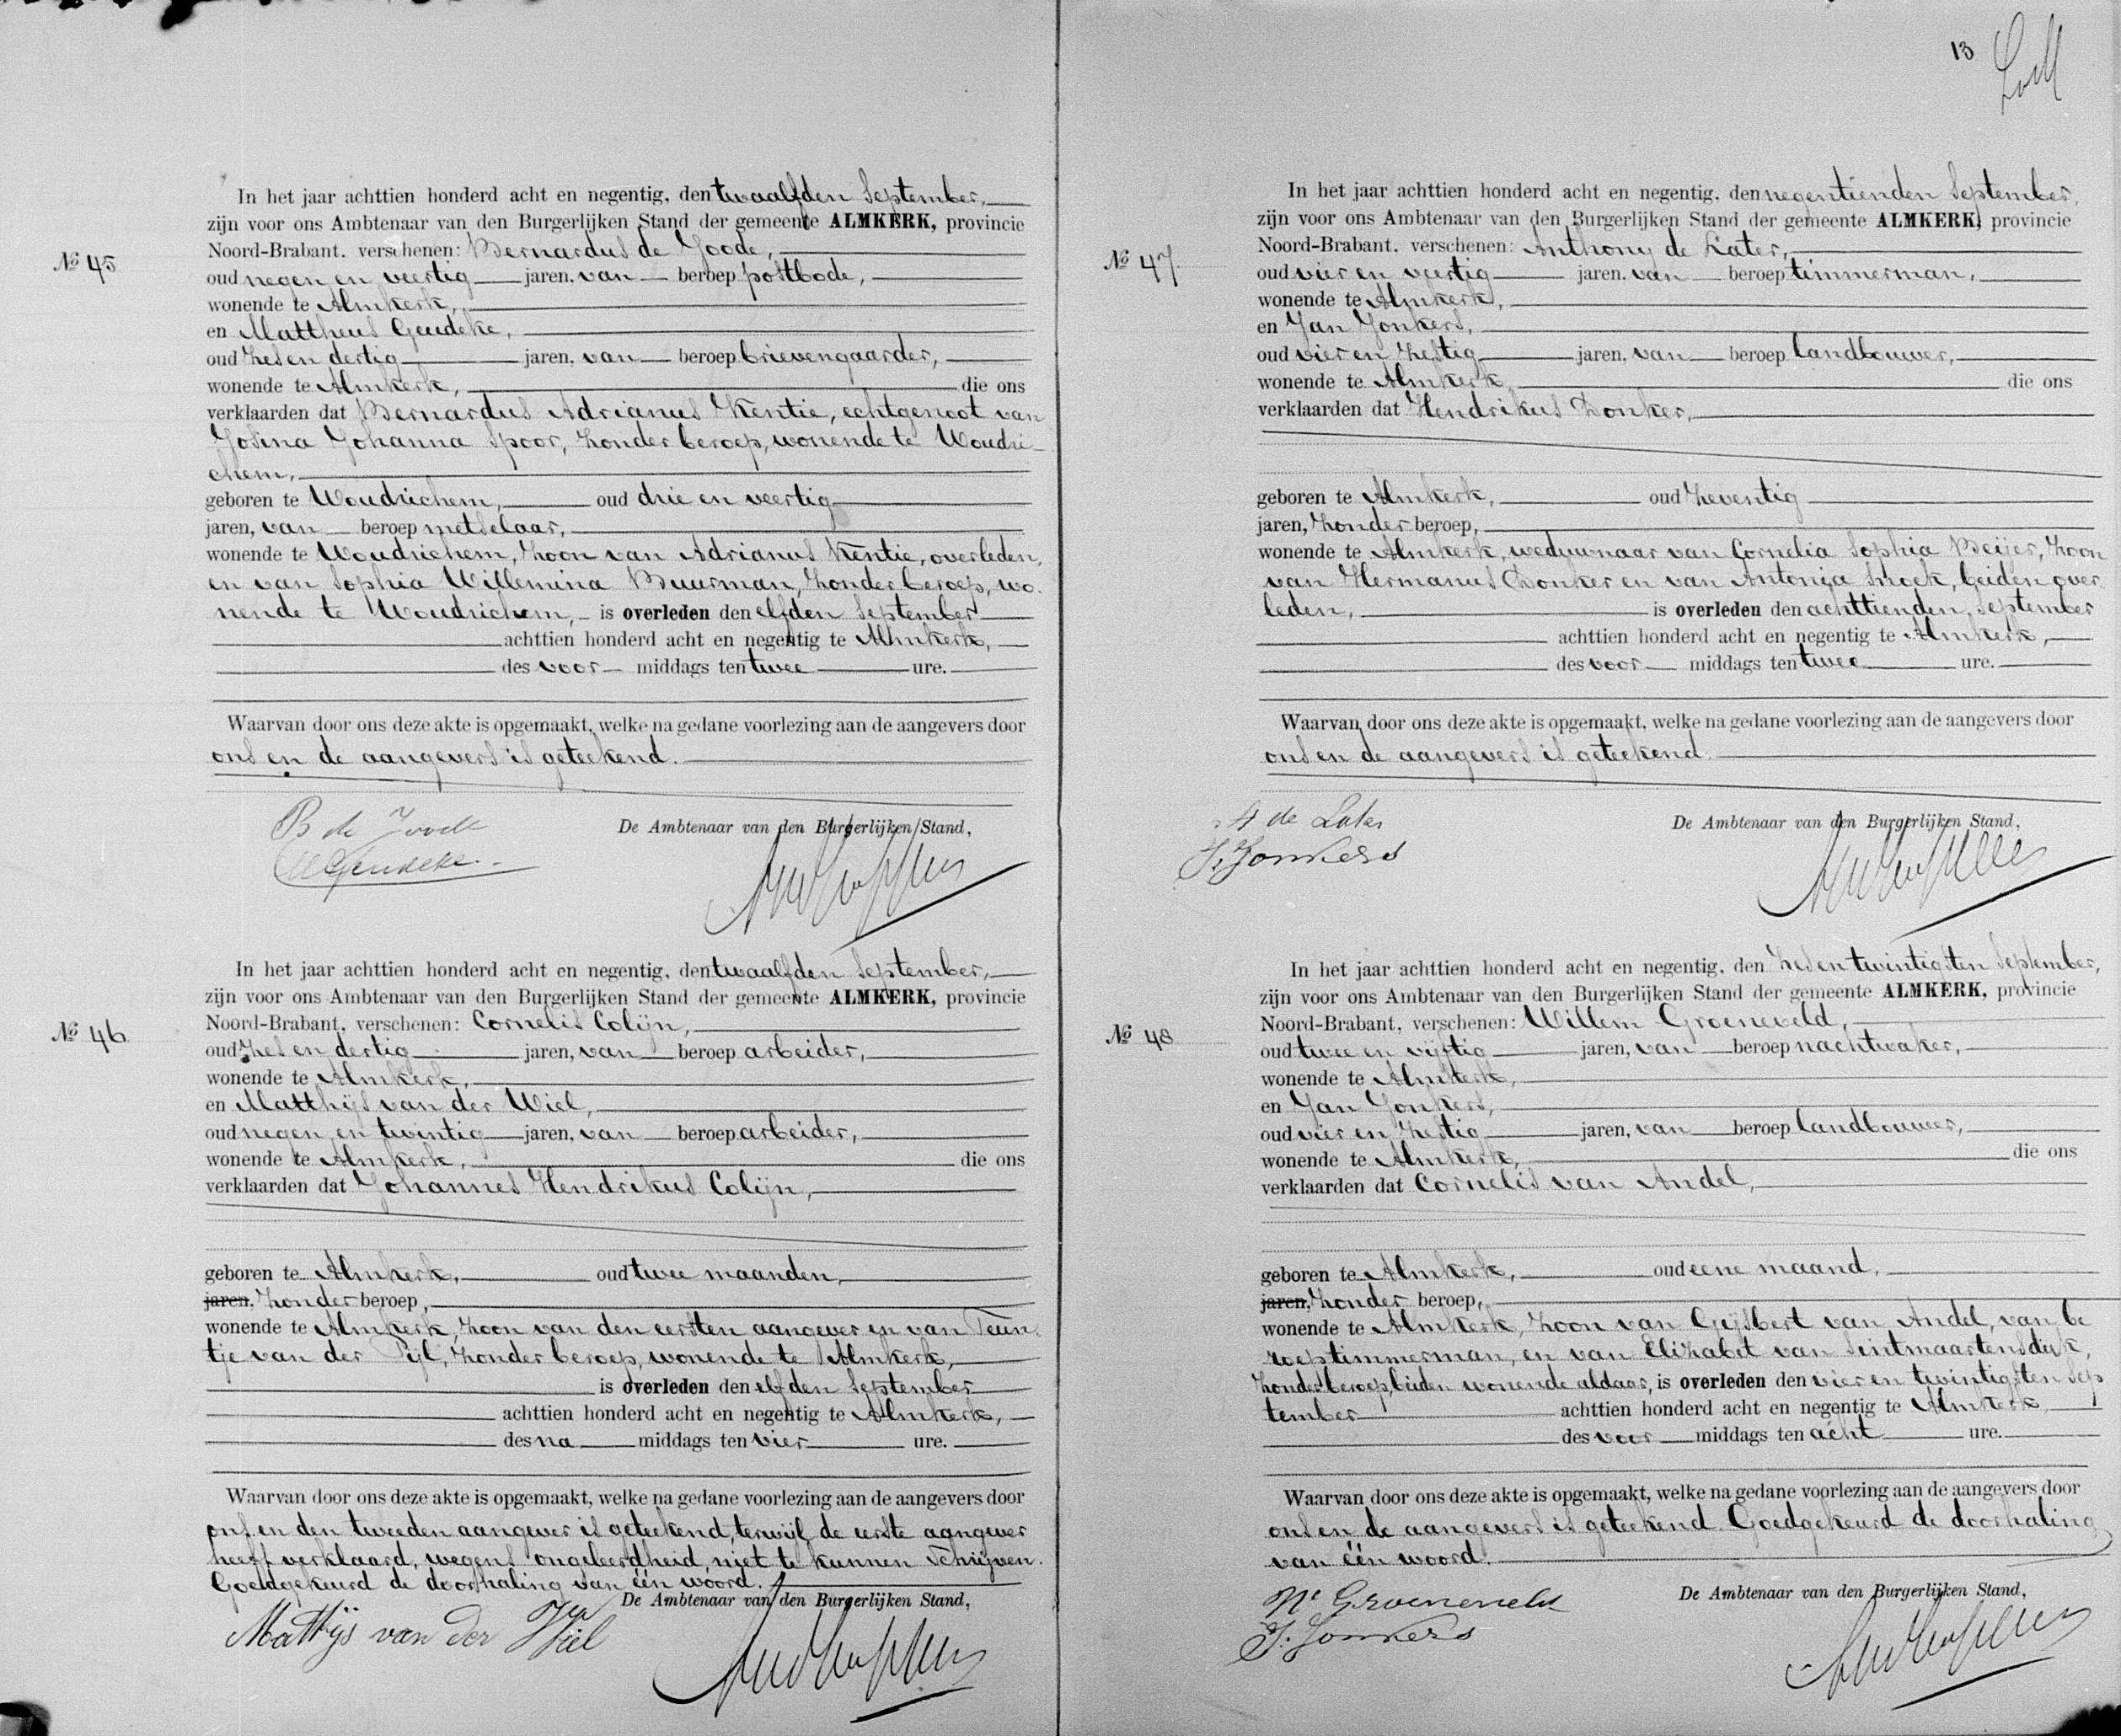 No 45
In het jaar achttien honderd acht en negentig, den twaalfden September,
zijn voor ons Ambtenaar van den Burgerlijken Stand der gemeente ALMKERK, provincie
Noord-Brabant, verschenen: Bernardus de Joode,
oud negen en veertig jaren, van beroep postbode,
wonende te Almkerk,
en Mattheus Geudeke,
oud zes en dertig jaren, van beroep brievengaarder,
wonende te Almkerk, die ons
verklaarden dat Bernardus Adrianus Kentie, echtgenoot van
Josina Johanna Spoor, zonder beroep, wonende te Woudri-
chem,
geboren te Woudrichem, oud drie en veertig
jaren, van beroep metselaar,
wonende te Woudrichem, zoon van Adrianus Kentie, overleden,
en van Sophia Willemina Buurman, zonder beroep, wo-
nende te Woudrichem, is overleden den elfden September
achttien honderd acht en negentig te Almkerk,
des voor middags ten twee ure.
Waarvan door ons deze akte is opgemaakt, welke na gedane voorlezing aan de aangevers door
ons en de aangevers is geteekend.
B de Joode
De Ambtenaar van den Burgerlijken Stand,
MGeudeke
No 46
In het jaar achttien honderd acht en negentig, den twaalfden September,
zijn voor ons Ambtenaar van den Burgerlijken Stand der gemeente ALMKERK, provincie
Noord-Brabant, verschenen: Cornelis Colijn,
oud zes en dertig jaren, van beroep arbeider,
wonende te Almkerk,
en Matthijs van der Wiel,
oud negen en twintig jaren, van beroep arbeider,
wonende te Almkerk, die ons
verklaarden dat Johannes Hendrikus Colijn,
geboren te Almkerk, oud twee maanden,
jaren, zonder beroep,
wonende te Almkerk, zoon van den eersten aangever en van Teun-
tje van der Pijl, zonder beroep, wonende te Almkerk,
is overleden den elfden September
achttien honderd acht en negentig te Almkerk,
des na middags ten vier ure.
Waarvan door ons deze akte is opgemaakt, welke na gedane voorlezing aan de aangevers door
ons en den tweeden aangever is geteekend, terwijl de eerste aangever
heeft verklaard, wegens ongeleerdheid niet te kunnen schrijven.
Goedgekeurd de doorhaling van één woord.
De Ambtenaar van den Burgerlijken Stand,
Mattijs van der Wiel
13
No 47
In het jaar achttien honderd acht en negentig, den negentienden September,
zijn voor ons Ambtenaar van den Burgerlijken Stand der gemeente ALMKERK, provincie
Noord-Brabant, verschenen: Anthony de Later,
oud vier en veertig jaren, van beroep timmerman,
wonende te Almkerk,
en Jan Jonkers,
oud vier en zestig jaren, van beroep landbouwer,
wonende te Almkerk, die ons
verklaarden dat Hendrikus Donker,
geboren te Almkerk, oud zeventig
jaren, zonder beroep,
wonende te Almkerk, weduwnaar van Cornelia Sophia Beijer, zoon
van Hermanus Donker en van Antonia Snoek, beiden over-
leden, is overleden den achttienden September
achttien honderd acht en negentig te Almkerk,
des voor middags ten twee ure.
Waarvan door ons deze akte is opgemaakt, welke na gedane voorlezing aan de aangevers door
ons en de aangevers is geteekend.
A de Later
De Ambtenaar van den Burgerlijken Stand,
J. Jonkers
No 48
In het jaar achttien honderd acht en negentig, den zes en twintigsten September,
zijn voor ons Ambtenaar van den Burgerlijken Stand der gemeente ALMKERK, provincie
Noord-Brabant, verschenen: Willem Groeneveld,
oud twee en vijftig jaren, van beroep nachtwaker,
wonende te Almkerk,
en Jan Jonkers,
oud vier en zestig jaren, van beroep landbouwer,
wonende te Almkerk, die ons
verklaarden dat Cornelis van Andel,
geboren te Almkerk, oud eene maand,
jaren, zonder beroep,
wonende te Almkerk, zoon van Gijsbert van Andel, van be
roep timmerman, en van Elizabet van Sintmaartensdijk,
zonder beroep, beiden wonende aldaar, is overleden den vier en twintigsten Sep
tember achttien honderd acht en negentig te Almkerk,
des voor middags ten acht ure.
Waarvan door ons deze akte is opgemaakt, welke na gedane voorlezing aan de aangevers door
ons en de aangevers is geteekend. Goedgekeurd de doorhaling
van één woord.
De Ambtenaar van den Burgerlijken Stand,
W Groeneveld
J. Jonkers